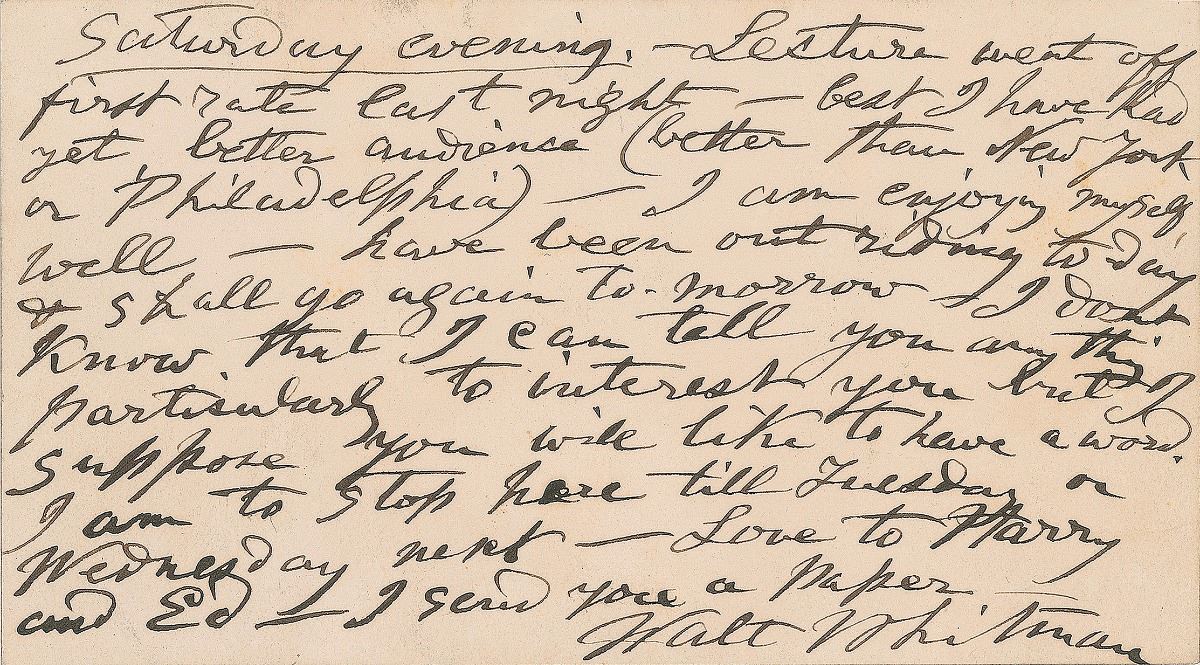 Saturday evening. — Lecture went off
first rate last night — best I have had
yet, better audience (better than New York
or Philadelphia) — I am enjoying myself
well, — have been out riding to-day
& shall go again to-morrow — I dont
know that I can tell you any thing
particularly to interest you but I
suppose you will like to have a word.
I am to stop here till Tuesday or
Wednesday next — Love to Harry
and Ed — I send you a paper
Walt Whitman